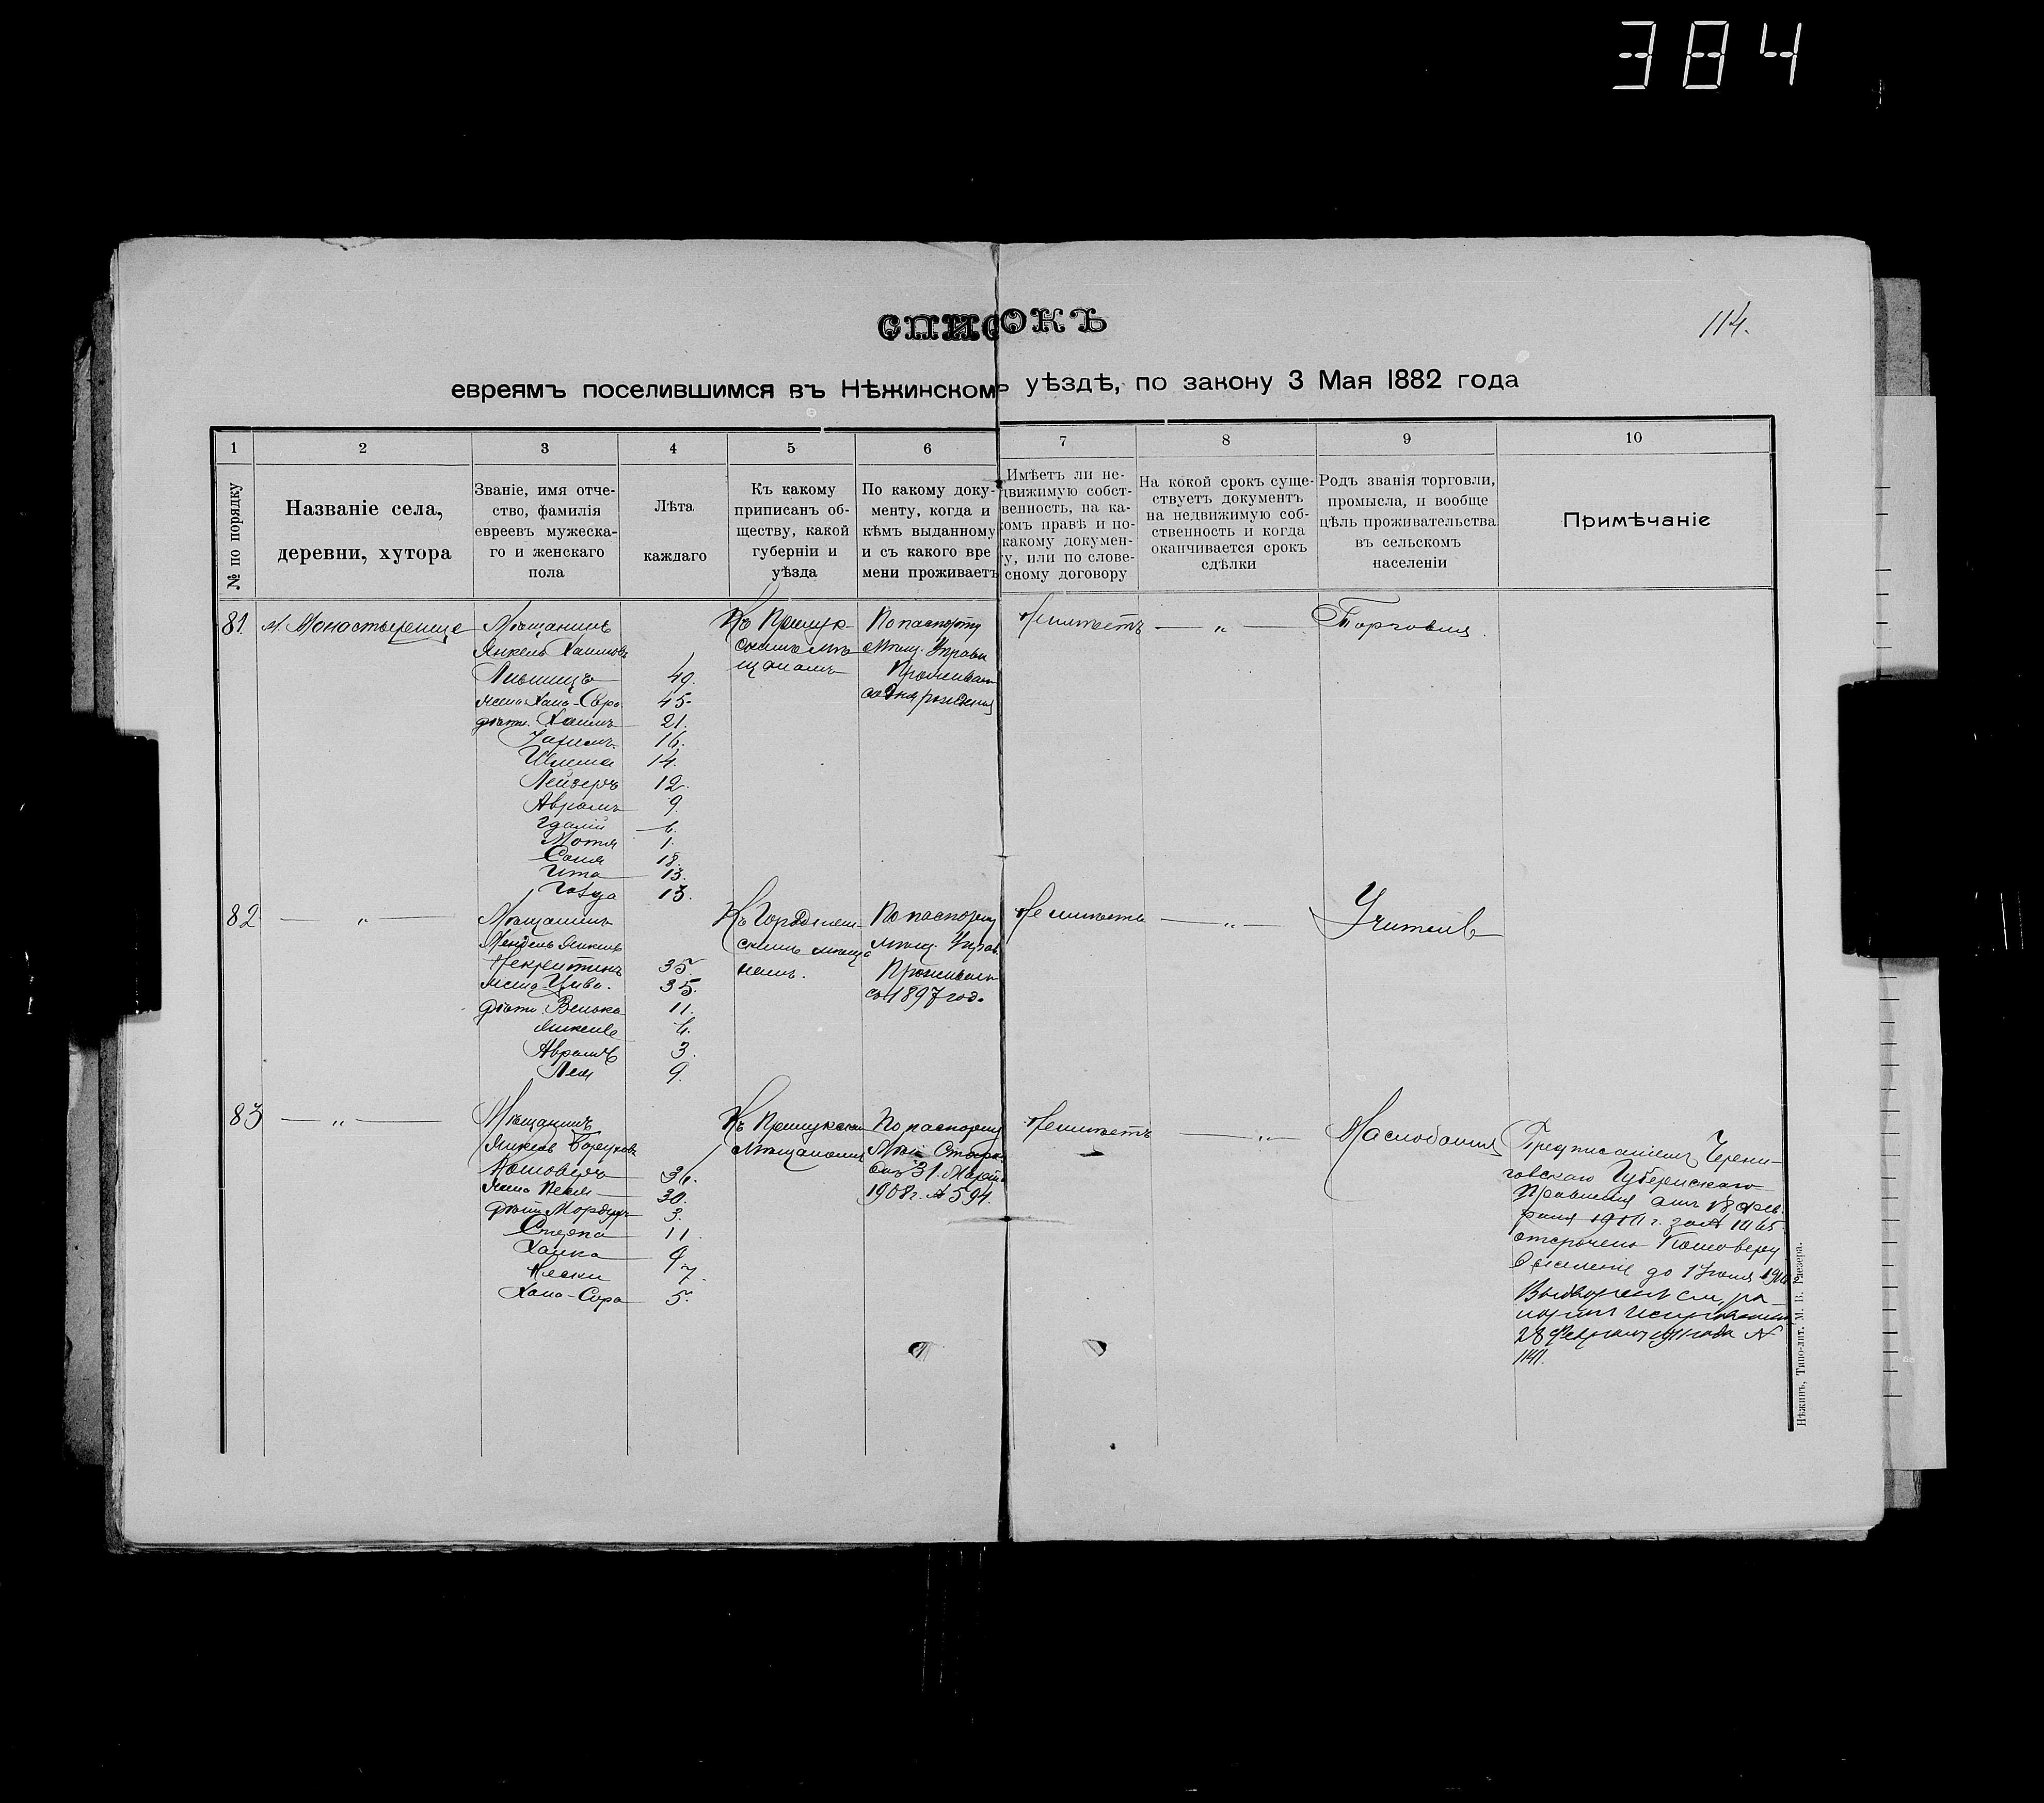 384
114.
СПИСОКЪ
евреямъ поселившимся въ Нѣжинскомъ уѣздѣ, по закону 3 Мая 1882 года
1 2 3 4 5 6 7 8 9 10
№ по порядку
Названіе села,
деревни, хутора
Званіе, имя отче-
ство, фамилія
евреевъ мужеска-
го и женскаго
пола
Лѣта
каждаго
Къ какому
приписанъ об-
ществу, какой
губерніи и
уѣзда
По какому доку-
менту, когда и
кѣмъ выданному
и съ какого вре
мени проживаетъ
Имѣетъ ли не-
движимую собст-
венность, на ка-
комъ правѣ и по-
какому докумен-
ту, или по слове-
сному договору
На кокой срокъ суще-
ствуетъ документъ
на недвижимую соб-
ственность и когда
оканчивается срокъ
сдѣлки
Родъ званія торговли,
промысла, и вообще
цѣль проживательства
въ сельскомъ
населеніи
Примѣчаніе
81. м. Монастырище
Мѣщанинъ
Янкель Хаимовъ
Лившицъ 49.
жена Хана-Сора 45.
дѣти. Хаимъ 21.
16.
Шлема 14.
Лейзеръ 12.
Аврамъ 9.
Гдалій 6.
Мотя 1.
Соня 18.
Ита 13.
13.
Къ Прилук-
скимъ мѣ
щанамъ
По паспорту
Мѣщ. Управы
Проживаетъ
со дня рожденія
Не имѣетъ — „ — Торговля.
82 — „ —
Мѣщанинъ
Мендель Янкель
35.
жена Цива. 35.
дѣти. Велька 11.
Янкель 6.
Аврамъ 3.
Лея 9.
Къ Городнян-
скимъ мѣща
намъ.
По паспорту
мѣщ. Управ.
Проживаетъ
съ 1897 год.
Не имѣетъ — „ — Учитель
83 — „ —
Мѣщанинъ
Янкель Боруховъ
Кошоверъ 36.
жена Песя 30.
дѣти Мордухъ 3.
Стерна 11.
Ханка 9
7.
Хана-Сора 5.
Къ Прилукскимъ
Мѣщанамъ
По паспорту
Мѣщ. Старо-
сты 31. Марта
1908 г. № 594.
Не имѣетъ — „ — Маслобойня
Предписаніемъ Черни-
говскаго Губернскаго
Правленія отъ 18 Фев-
раля 1910 г. за №
отсрочено Кошоверу
выселеніе до 1 Іюня 1910
Выдворенъ см. ра
портъ Исправника
28 Февраля 1911 года №
1141.
Нѣжинъ, Типо-лит. М. В. Глезера.